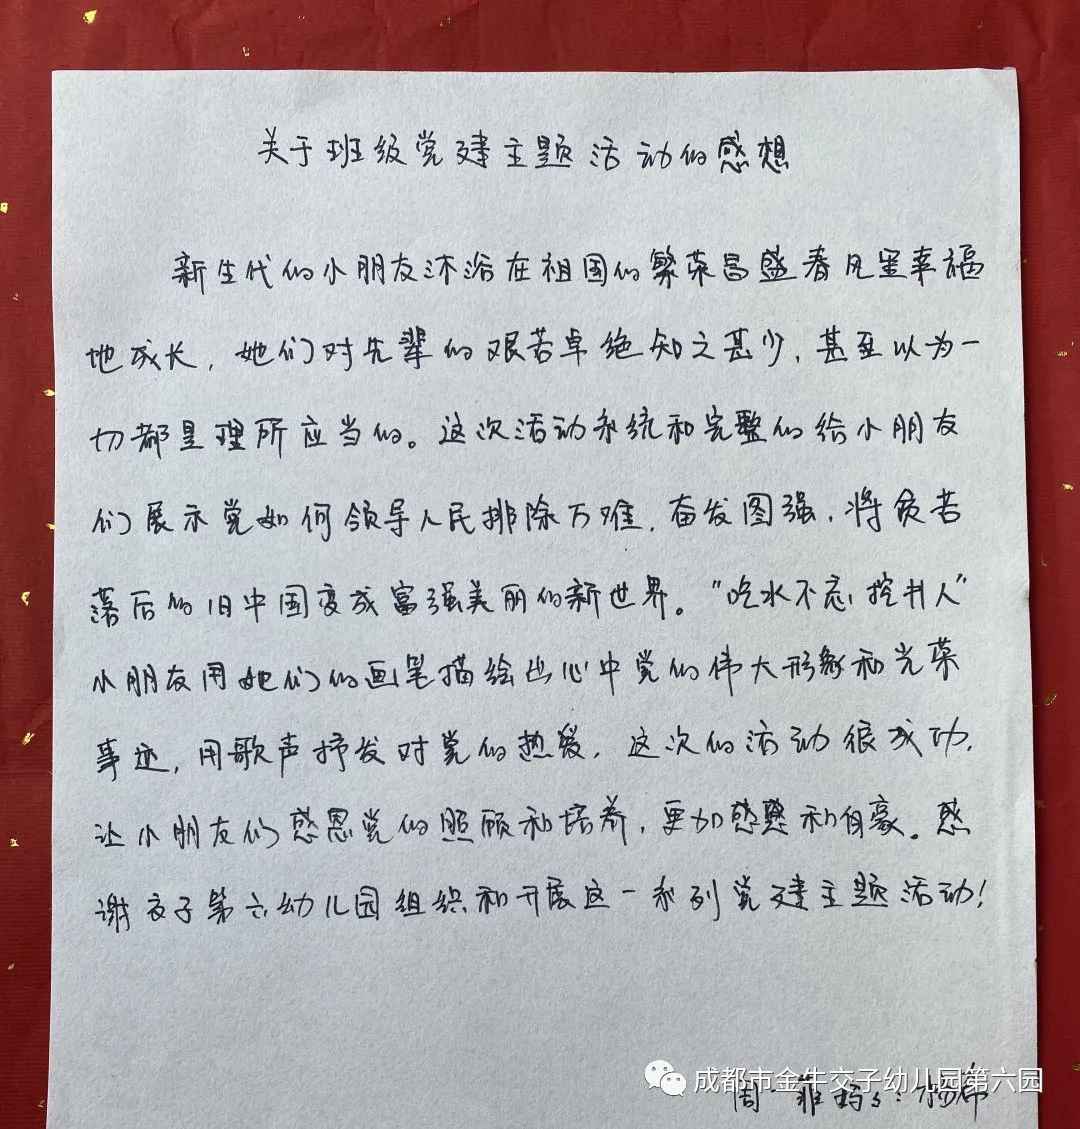 关于班级党建主题活动的感想
新生代的小朋友沐浴在祖国的繁荣昌盛春风里幸福
地成长，她们对先辈的艰苦卓绝知之甚少，甚至以为一
切都是理所应当的。这次活动系统和完整的给小朋友
们展示党如何领导人民排除万难，奋发图强，将贫苦
落后的旧中国变成富强美丽的新世界。“吃水不忘挖井人”
小朋友用她们的画笔描绘出心中党的伟大形象和光荣
事迹，用歌声抒发对党的热爱，这次的活动很成功，
让小朋友们感恩党的照顾和培养，更加感慨和自豪。感
谢交子第六幼儿园组织和开展这一系列党建主题活动！
成都市金牛交子幼儿园第六园
周一菲妈妈：杨